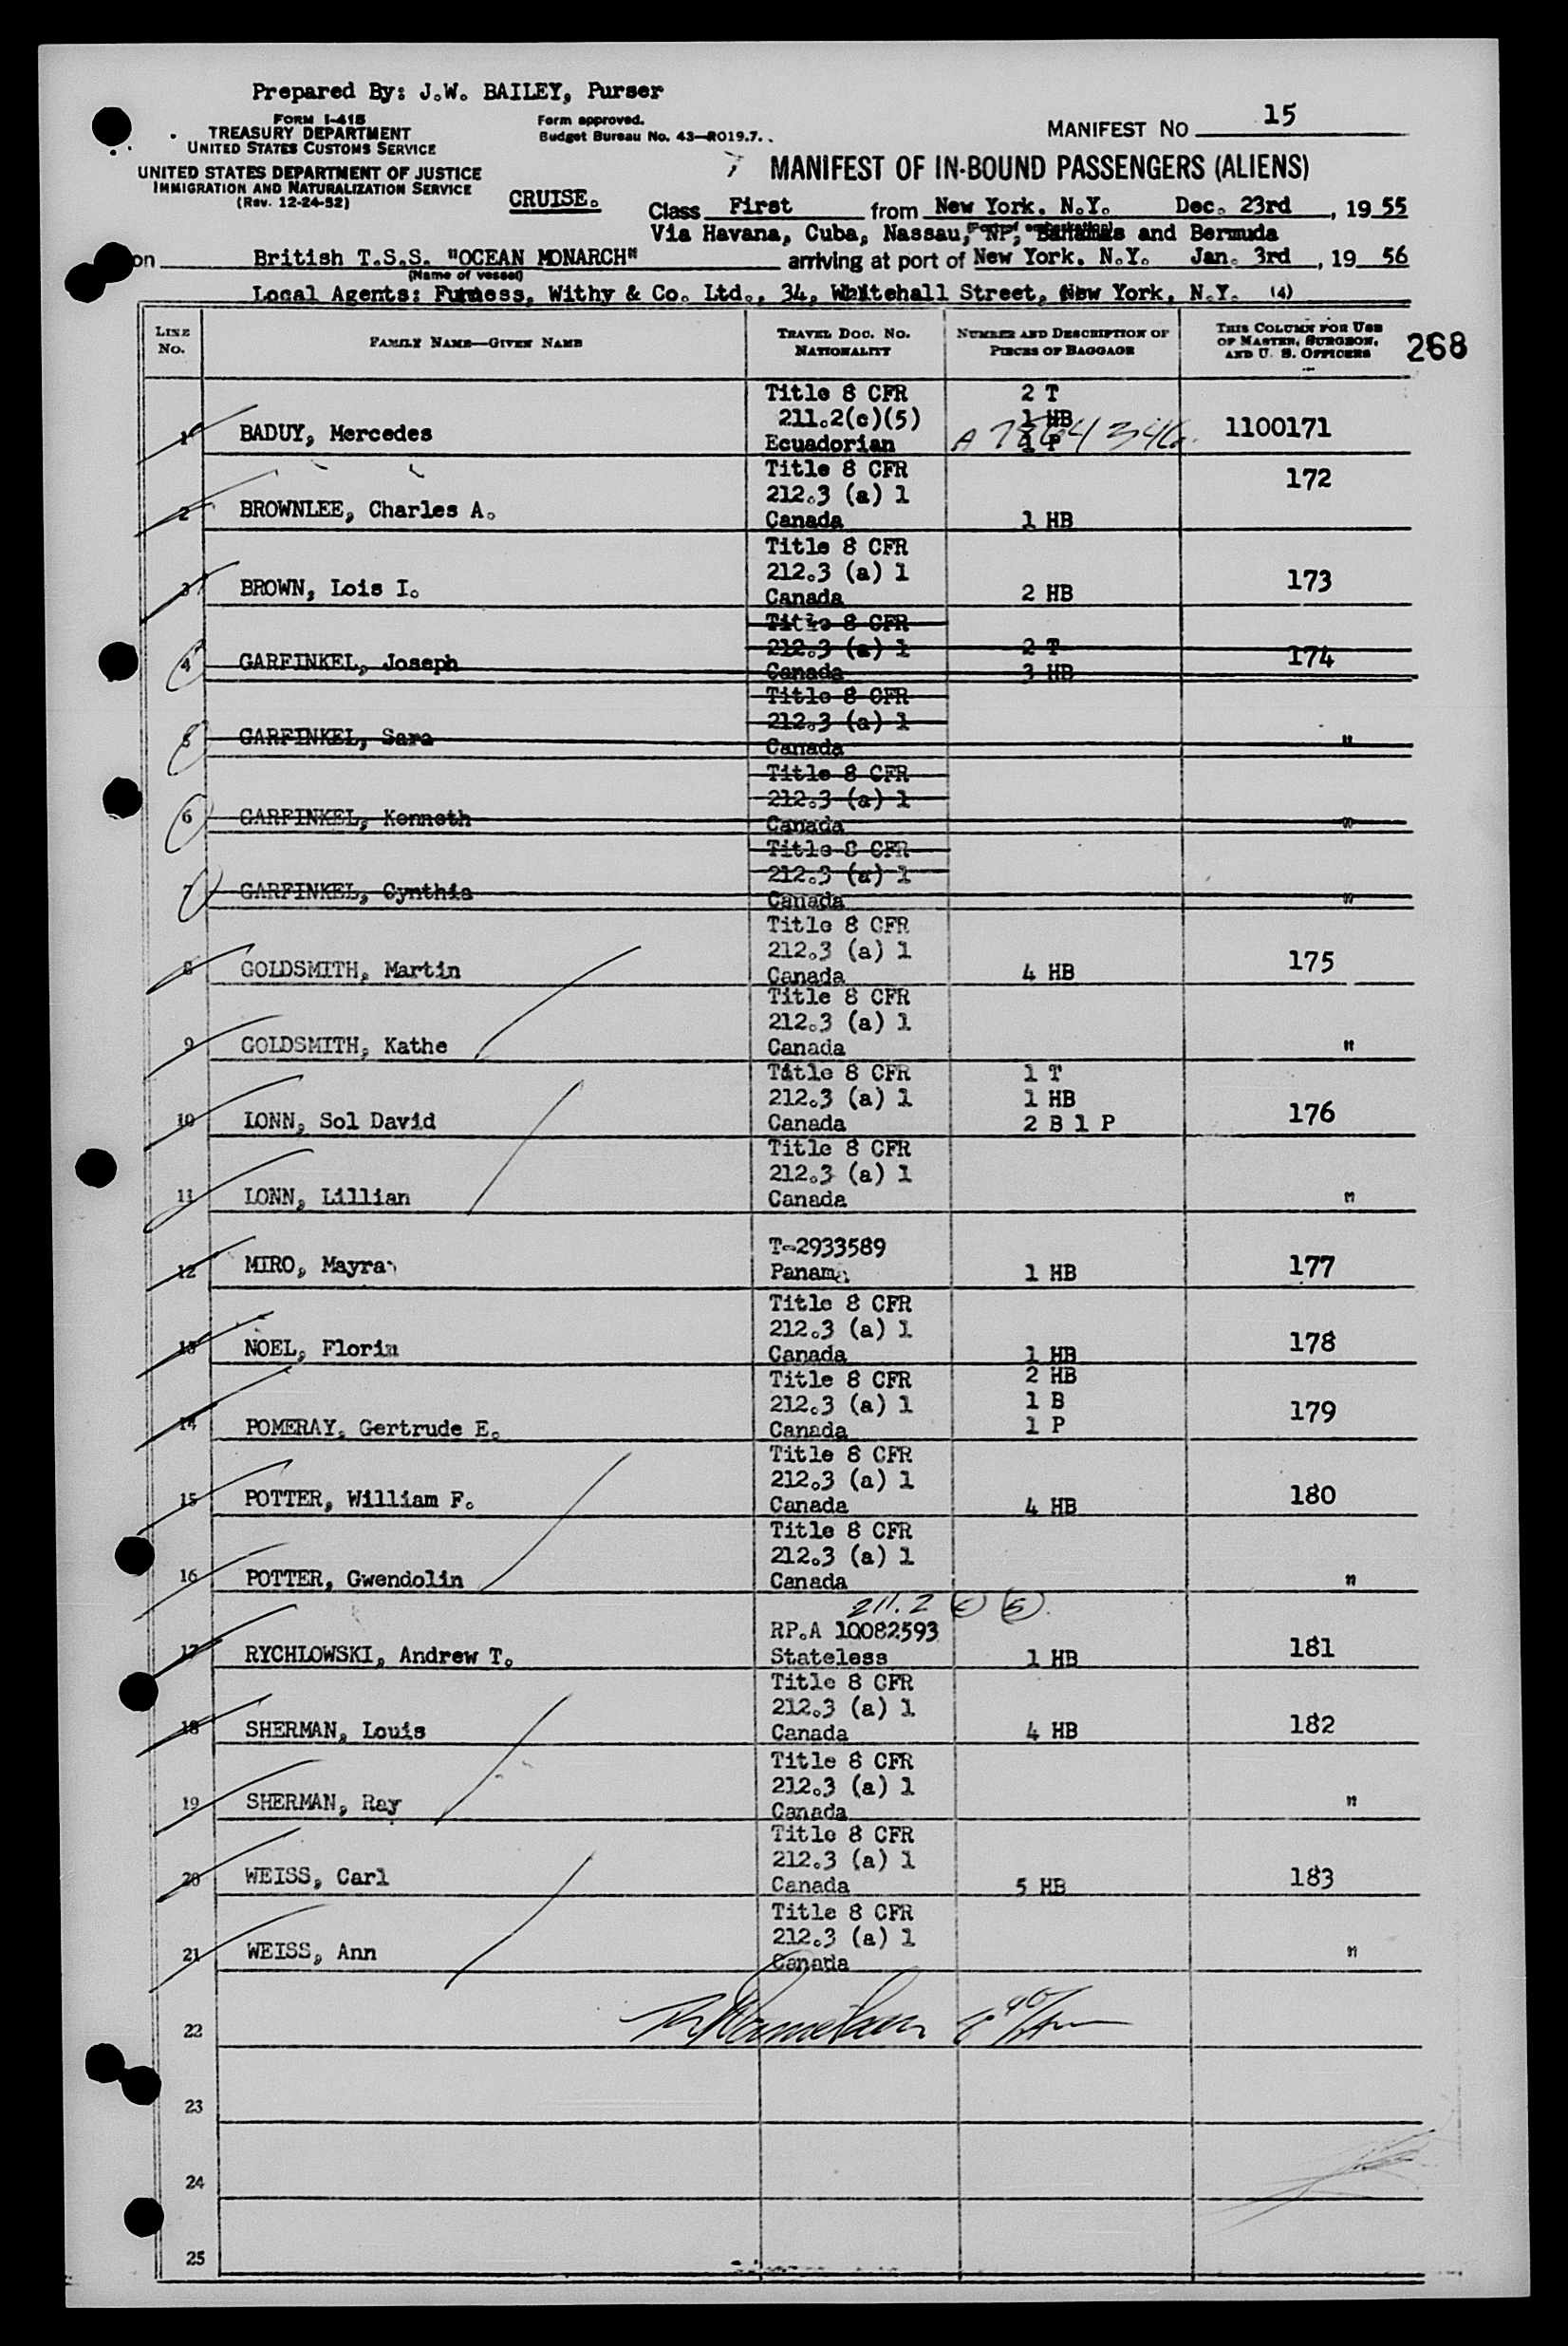 Prepared By: J.W. BAILEY, Purser
FORM I-418
TREASURY DEPARTMENT
UNITED STATES CUSTOMS SERVICE
UNITED STATES DEPARTMENT OF JUSTICE
IMMIGRATION AND NATURALIZATION SERVICE
(Rev. 12-24-52)
Form approved.
Budget Bureau No. 43—R019.7.
MANIFEST NO 15
MANIFEST OF IN-BOUND PASSENGERS (ALIENS)
CRUISE.
Class First from New York. N.Y. Dec. 23rd, 1955
Via Havana, Cuba, Nassau, NP, Bahamas and Bermuda
on British T.S.S. "OCEAN MONARCH" arriving at port of New York. N.Y. Jan. 3rd, 1956
(Name of vessel)
Local Agents: Furness, Withy & Co. Ltd., 34, Whitehall Street, New York, N.Y. (4)
LINE NO.
FAMILY NAME—GIVEN NAME
TRAVEL DOC. NO. NATIONALITY
NUMBER AND DESCRIPTION OF PIECES OF BAGGAGE
THIS COLUMN FOR USE OF MASTER, SURGEON, AND U. S. OFFICERS
268
Title 8 CFR 2 T
211.2(c)(5) 1 HB
1 BADUY, Mercedes Ecuadorian 1 P 1100171
Title 8 CFR 172
212.3 (a) 1
2 BROWNLEE, Charles A. Canada 1 HB
Title 8 CFR
212.3 (a) 1 173
3 BROWN, Lois I. Canada 2 HB
Title 8 CFR
212.3 (a) 1 2 T 174
4 GARFINKEL, Joseph Canada 3 HB
Title 8 CFR
212.3 (a) 1
5 GARFINKEL, Sara Canada "
Title 8 CFR
212.3 (a) 1
6 GARFINKEL, Kenneth Canada "
Title 8 CFR
212.3 (a) 1
7 GARFINKEL, Cynthia Canada "
Title 8 CFR
212.3 (a) 1 175
8 GOLDSMITH, Martin Canada 4 HB
Title 8 CFR
212.3 (a) 1
9 GOLDSMITH, Kathe Canada "
Title 8 CFR 1 T
212.3 (a) 1 1 HB
10 LONN, Sol David Canada 2 B 1 P 176
Title 8 CFR
212.3 (a) 1
11 LONN, Lillian Canada "
T-2933589
12 MIRO, Mayra Panama 1 HB 177
Title 8 CFR
212.3 (a) 1 178
13 NOEL, Florin Canada 1 HB
Title 8 CFR 2 HB
212.3 (a) 1 1 B 179
14 POMERAY, Gertrude E. Canada 1 P
Title 8 CFR
212.3 (a) 1 180
15 POTTER, William F. Canada 4 HB
Title 8 CFR
212.3 (a) 1
16 POTTER, Gwendolin Canada "
211.2 (c) (5)
RP.A 10082593 181
17 RYCHLOWSKI, Andrew T. Stateless 1 HB
Title 8 CFR
212.3 (a) 1 182
18 SHERMAN, Louis Canada 4 HB
Title 8 CFR
212.3 (a) 1
19 SHERMAN, Ray Canada "
Title 8 CFR
212.3 (a) 1 183
20 WEISS, Carl Canada 5 HB
Title 8 CFR
212.3 (a) 1
21 WEISS, Ann Canada "
22
23
24
25